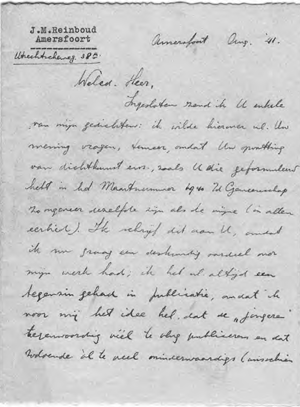 J.M.Reinboud
Amersfoort
Utrechtscheweg 385
Amersfoort Aug. '41.
WelEd. Heer,
Ingesloten zend ik U enkele
van mijn gedichten: ik wilde hierover nl. Uw
meening vragen, temeer, omdat Uw opvatting
van dichtkunst enz., zoals U die geformuleerd
hebt in het Maartnummer 1941 Gemeenschap
zo ongeveer dezelfde zijn als de mijne (in alle
eerlijkheid). Ik schrijf dit aan U, omdat
ik nu graag een deskundig oordeel over
mijn werk had; ik heb nl altijd een
tegenzin gehad in publicatie, omdat ik
voor mij het idee heb, dat de „jongere"
tegenwoordig véél te vlug publiceren en dat
zodoende òl te veel minderwaardigs (misschien